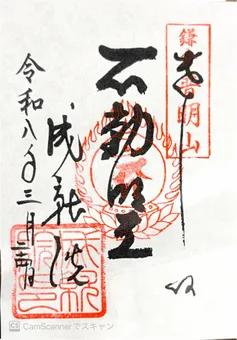 奉拝
普明山
不動明王
成就院
令和八年三月
CS CamScannerでスキャン